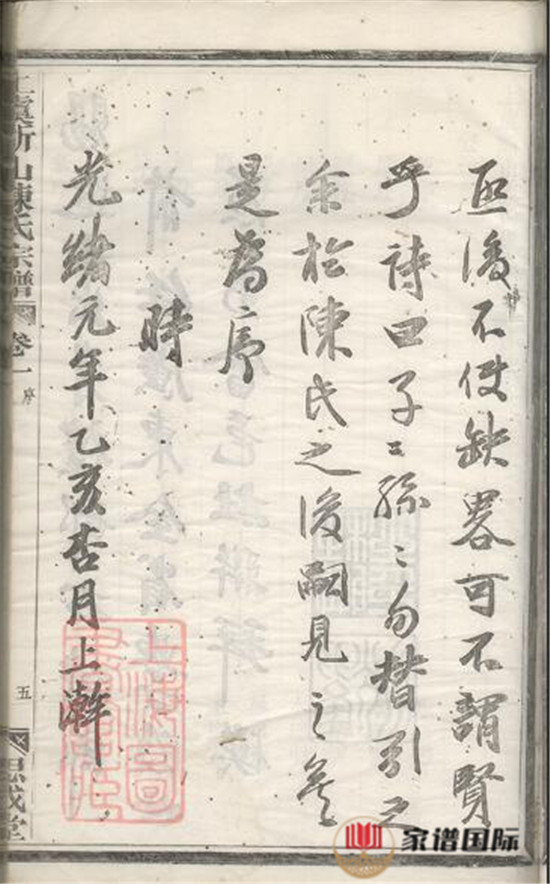 亟後不使缺畧可不謂賢
乎詩曰子〻孫〻勿替引之
余於陳氏之後嗣見之矣
是為序
時
光緒元年乙亥杏月上澣
上虞新山陳氏宗譜
卷一
序
五
思成堂
家谱国际